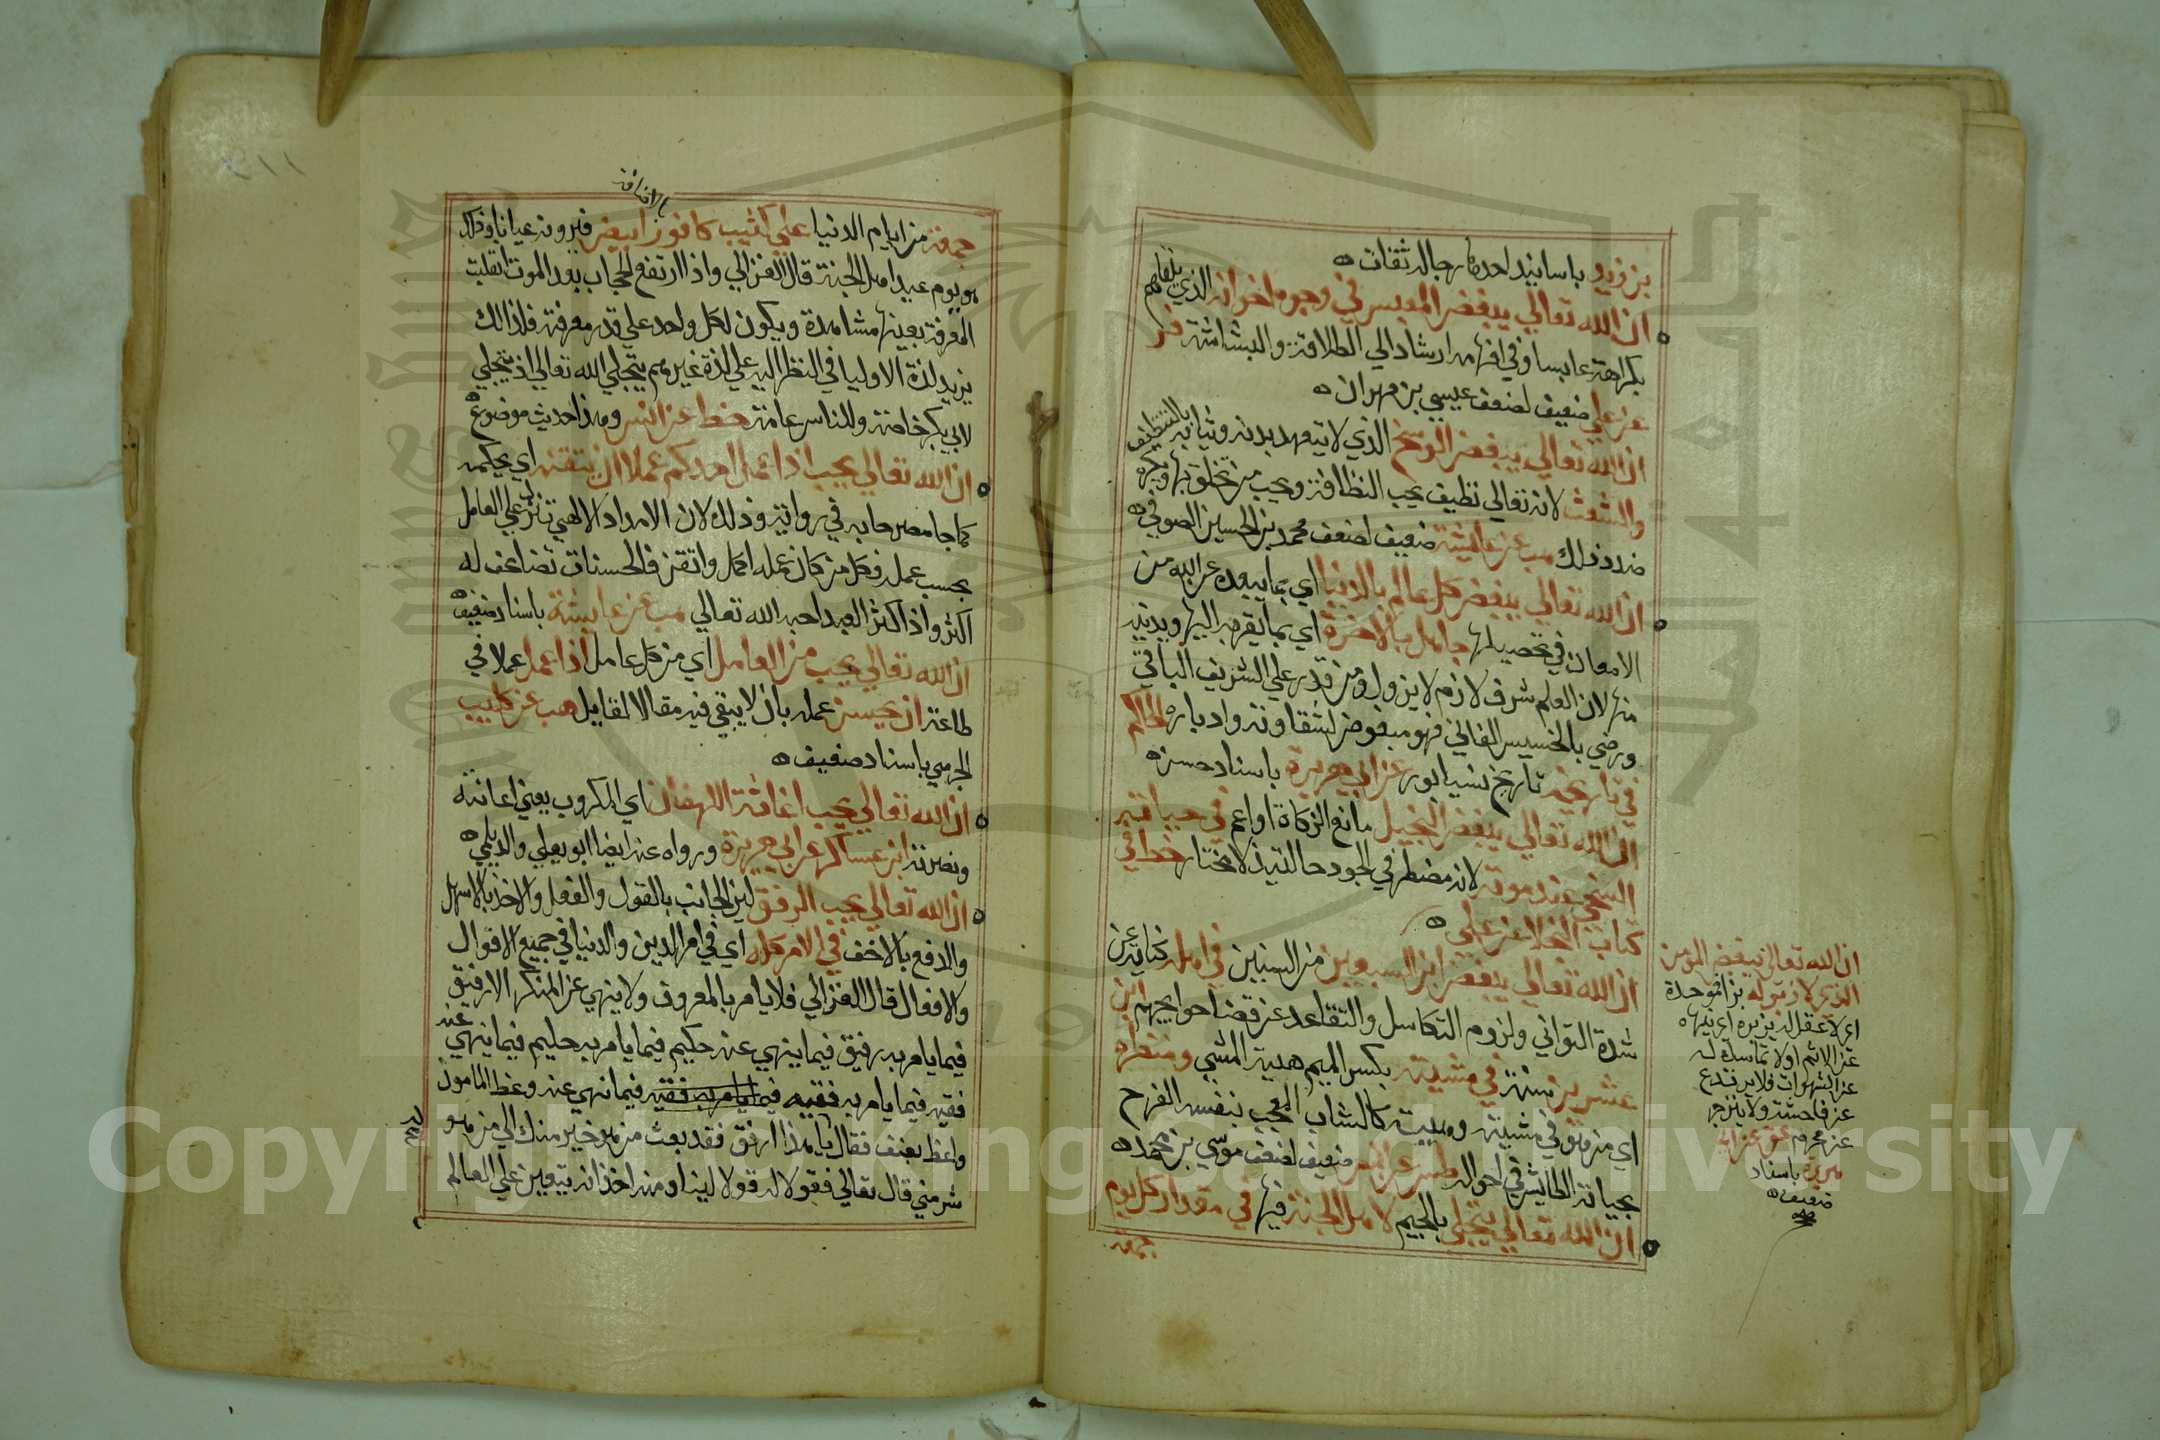 بن زيد باسانيد احدها رجاله ثقات
ان الله تعالي يبغض المعبس في وجوه اخوانه الذي يلقاهم
بكراهة عابسا وفي افهامه ارشاد الي الطلاقة والبشاشة فر
عن علي ضعيف لضعف عيسي بن مهران
ان الله تعالي يبغض الوسخ الذي لا يتعهد بدنه وثيابه بالتنظيف
والشعث لانه تعالي نظيف يحب النظافة ويحب من تخلق بها ويكره
ضد ذلك هب عن عايشة ضعيف لضعف محمد بن الحسين الصوفي
ان الله تعالي يبغض كل عالم بالدنيا اي بما يبعده عن الله من
الامعان في تحصيلها جاهل بالاخرة اي بما يقربه اليها ويدنيه
منها لان العلم شرف لازم لا يزول ومن قدر علي الشريف الباقي
ورضي بالخسيس الفاني فهو مبغوض لشقاوته وادباره الحاكم
في تاريخه تاريخ نسيابور عن ابي هريرة باسناد حسن
ان الله تعالي يبغض البخيل مانع الزكاة او اعم في حياته
السخي عند موته لانه مضطر في الجود حالتيذ لا مختار خط في
كتاب البخلا عن علي
ان الله تعالي يبغض ابن السبعين من السنين في اهله كناية عن
شدة التواني ولزوم التكاسل والتقاعد عن قضا حوايجهم ابن
عشرين سنة في مشيته بكسر الميم هيئة المشي ومنظره
اي من هو في مشيته وهيئته كالشاب المعجب بنفسه الفرح
بحياته الطايش في احواله طس عن انس ضعيف لضعف موسي بن محمد
ان الله تعالي يتجلي بالجيم لاهل الجنة فيها في مقدار كل يوم
جمعة
ان الله تعالي يبغض المومن
الذي لا زبر له بزا فموحدة
اي لا عقل له يزبره اي ينهاه
عن الاثم او لا تماسك له
عن الشهوات فلا يرتدع
عن فاحشة ولا ينزجر
عن محرم عق عن ابي
هريرة باسناد
ضعيف
الاضافة
جمعة من ايام الدنيا علي كثيب كافور ابيض فيرونه عيانا وذلك
هو يوم عيد اهل الجنة قال الغزالي واذا ارتفع الحجاب بعد الموت انقلبت
المعرفة بعينها مشاهدة ويكون لكل واحد علي قدر معرفته فلذالك
يزيد لذة الاوليا في النظر اليه علي لذة غيرهم يتجلي الله تعالي اذ يتجلي
لابي بكر خاصة وللناس عامة خط عن انس وهذا حديث موضوع
ان الله تعالي يحب اذا عمل احدكم عملا ان يتقنه اي يحكمه
كما جا مصرحا به في رواية وذلك لان الامداد الالهي تنزل علي العامل
بحسب عمله فكل من كان عمله اكمل واتقن فالحسنات تضاعف له
اكثر واذا اكثر العبد احبه الله تعالي هب عن عايشة باسناد ضعيف
ان الله تعالي يحب من العامل اي من كل عامل اذا عمل عملا في
طاعته ان يحسن عمله بان لا يبقي فيه مقالا لقايل هب عن كليب
الجرمي باسناد ضعيف
ان الله تعالي يحب اغاثة اللهفان اي المكروب يعني اعانته
ونصرته ابن عساكر عن ابي هريرة ورواه عنه ايضا ابو يعلي والديلمي
ان الله تعالي يحب الرفق لين الجانب بالقول والفعل والاخذ بالاسهل
والدفع بالاخف في الامر كله اي في امر الدين والدنيا في جميع الاقوال
والافعال قال الغزالي فلا يامر بالمعروف ولا ينهي عن المنكر الا رفيق
فيما يامر به رفيق فيما ينهي عنه حكيم فيما يامر به حليم فيما ينهي عنه
فقيه فيما يامر به فقيه فيما يامر به فقيه فيما نهي عنه وعظ المامون
واعظ بعنف فقال يا هذا ارفق فقد بعث من هو خير منك الي من هو
شر مني قال تعالي فقولا له قولا لينا ومنه اخذ انه يتعين علي العالم